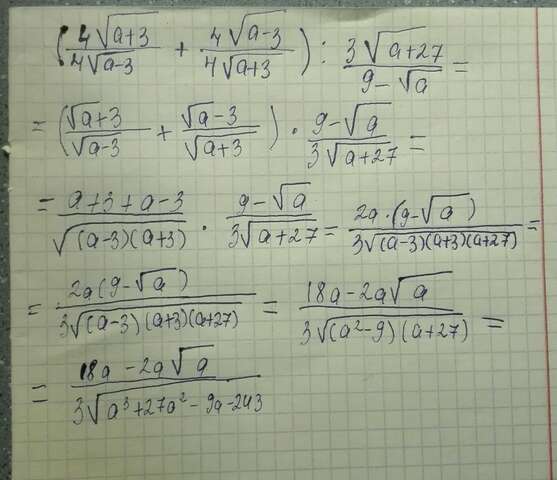 (4√(a+3)/4√(a-3) + 4√(a-3)/4√(a+3)) : 3√(a+27)/(9-√a) =
= (√(a+3)/√(a-3) + √(a-3)/√(a+3)) · (9-√a)/3√(a+27) =
= (a+3+a-3)/√((a-3)(a+3)) · (9-√a)/3√(a+27) = 2a·(9-√a)/3√((a-3)(a+3)(a+27)) =
= 2a(9-√a)/3√((a-3)(a+3)(a+27)) = (18a-2a√a)/3√((a²-9)(a+27)) =
= (18a-2a√a)/3√(a³+27a²-9a-243)